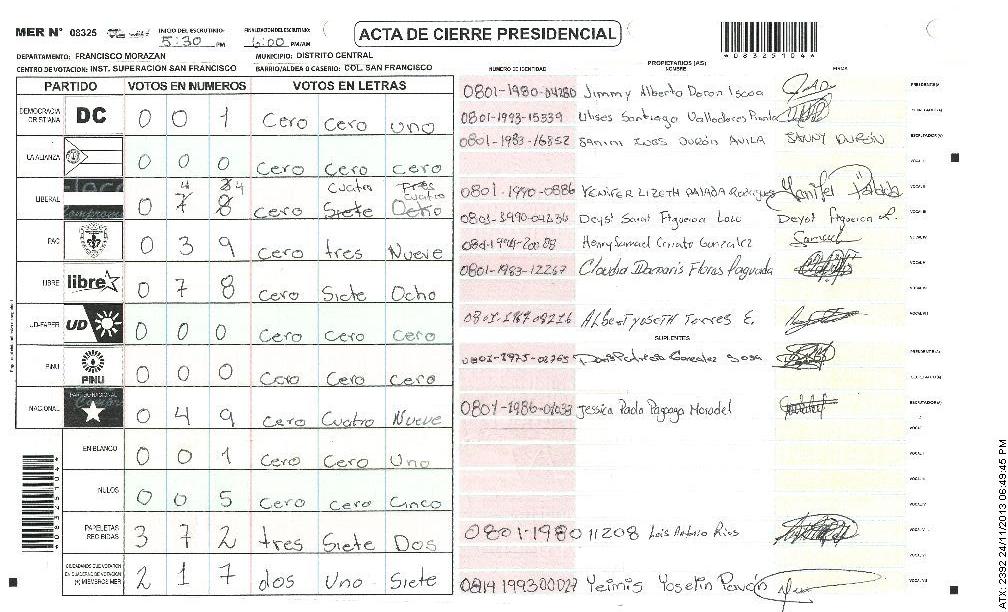 MER N° 08325
INICIO DEL ESCRUTINIO: 5:30 PM
FINALIZACION DEL ESCRUTINIO: 6:00 PM/AM
ACTA DE CIERRE PRESIDENCIAL
*08325104*
DEPARTAMENTO: FRANCISCO MORAZAN
MUNICIPIO: DISTRITO CENTRAL
CENTRO DE VOTACION: INST. SUPERACION SAN FRANCISCO
BARRIO/ALDEA O CASERIO: COL. SAN FRANCISCO
PARTIDO VOTOS EN NUMEROS VOTOS EN LETRAS
DEMOCRACIA CRISTIANA DC 0 0 1 Cero Cero uno
LA ALIANZA 0 0 0 Cero Cero cero
cuatro Tres
4 4 cuatro
LIBERAL 0 7 8 cero Siete Ocho
PAC 0 3 9 Cero tres Nueve
LIBRE libre 0 7 8 cero Siete Ocho
UD-FAPER UD 0 0 0 Cero Cero cero
PINU PINU 0 0 0 Cero Cero cero
NACIONAL 0 4 9 Cero Cuatro Nueve
EN BLANCO 0 0 1 Cero Cero Uno
NULOS 0 0 5 Cero cero Cinco
PAPELETAS RECIBIDAS 3 7 2 tres Siete Dos
CIUDADANOS QUE VOTARON EN CUADERNO DE VOTACION (+) MIEMBROS MER 2 1 7 dos Uno Siete
NUMERO DE IDENTIDAD PROPIETARIOS (AS) NOMBRE FIRMA
0801-1980-04280 Jimmy Alberto PRESIDENTE(A)
0801-1993-15539 Ulises Santiago Valladares SECRETARIO(A)
0801-1983-16852 INES DURÓN AVILA SANNY DURÓN ESCRUTADOR(A)
VOCAL I
0801-1990-0886 YENIFER LIZETH Rodriguez VOCAL II
Deysi Sarai Figueroa Deysi Figueroa L. VOCAL III
Henry Samuel Gonzalez Samuel VOCAL IV
0801-1983-12267 Claudia Damaris Flores VOCAL V
VOCAL VI
Torres E. VOCAL VII
SUPLENTES
Gonzalez Sosa PRESIDENTE(A)
SECRETARIO(A)
0801-1986-01038 Jessica Paola ESCRUTADOR(A)
VOCAL I
VOCAL II
VOCAL III
VOCAL IV
0801-198011208 Luis Antonio Rios
0814 199300027 Yeimis Yoselin Pavón
ATX: 2392 24/11/2013 06:49:45 PM